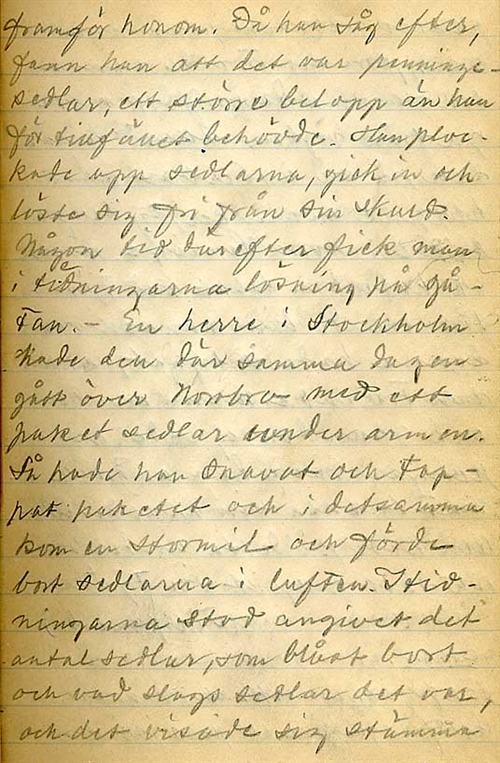 framför honom. Då han såg efter,
fann han att det var penninge-
sedlar, ett större belopp än han
för tillfället behövde. Han ploc-
kade upp sedlarna, gick in och
löste sig fri från sin skuld.
Någon tid därefter fick man
i tidningarna lösning på gå-
tan. – En herre i Stockholm
hade den där samma dagen
gått över Norrbro med ett
paket sedlar under armen.
Så hade han snavat och tap-
pat paketet och i detsamma
kom en stormil och förde
bort sedlarna i luften. I tid-
ningarna stod angivet det
antal sedlar, som blåst bort
och vad slags sedlar det var,
och det visade sig stämma